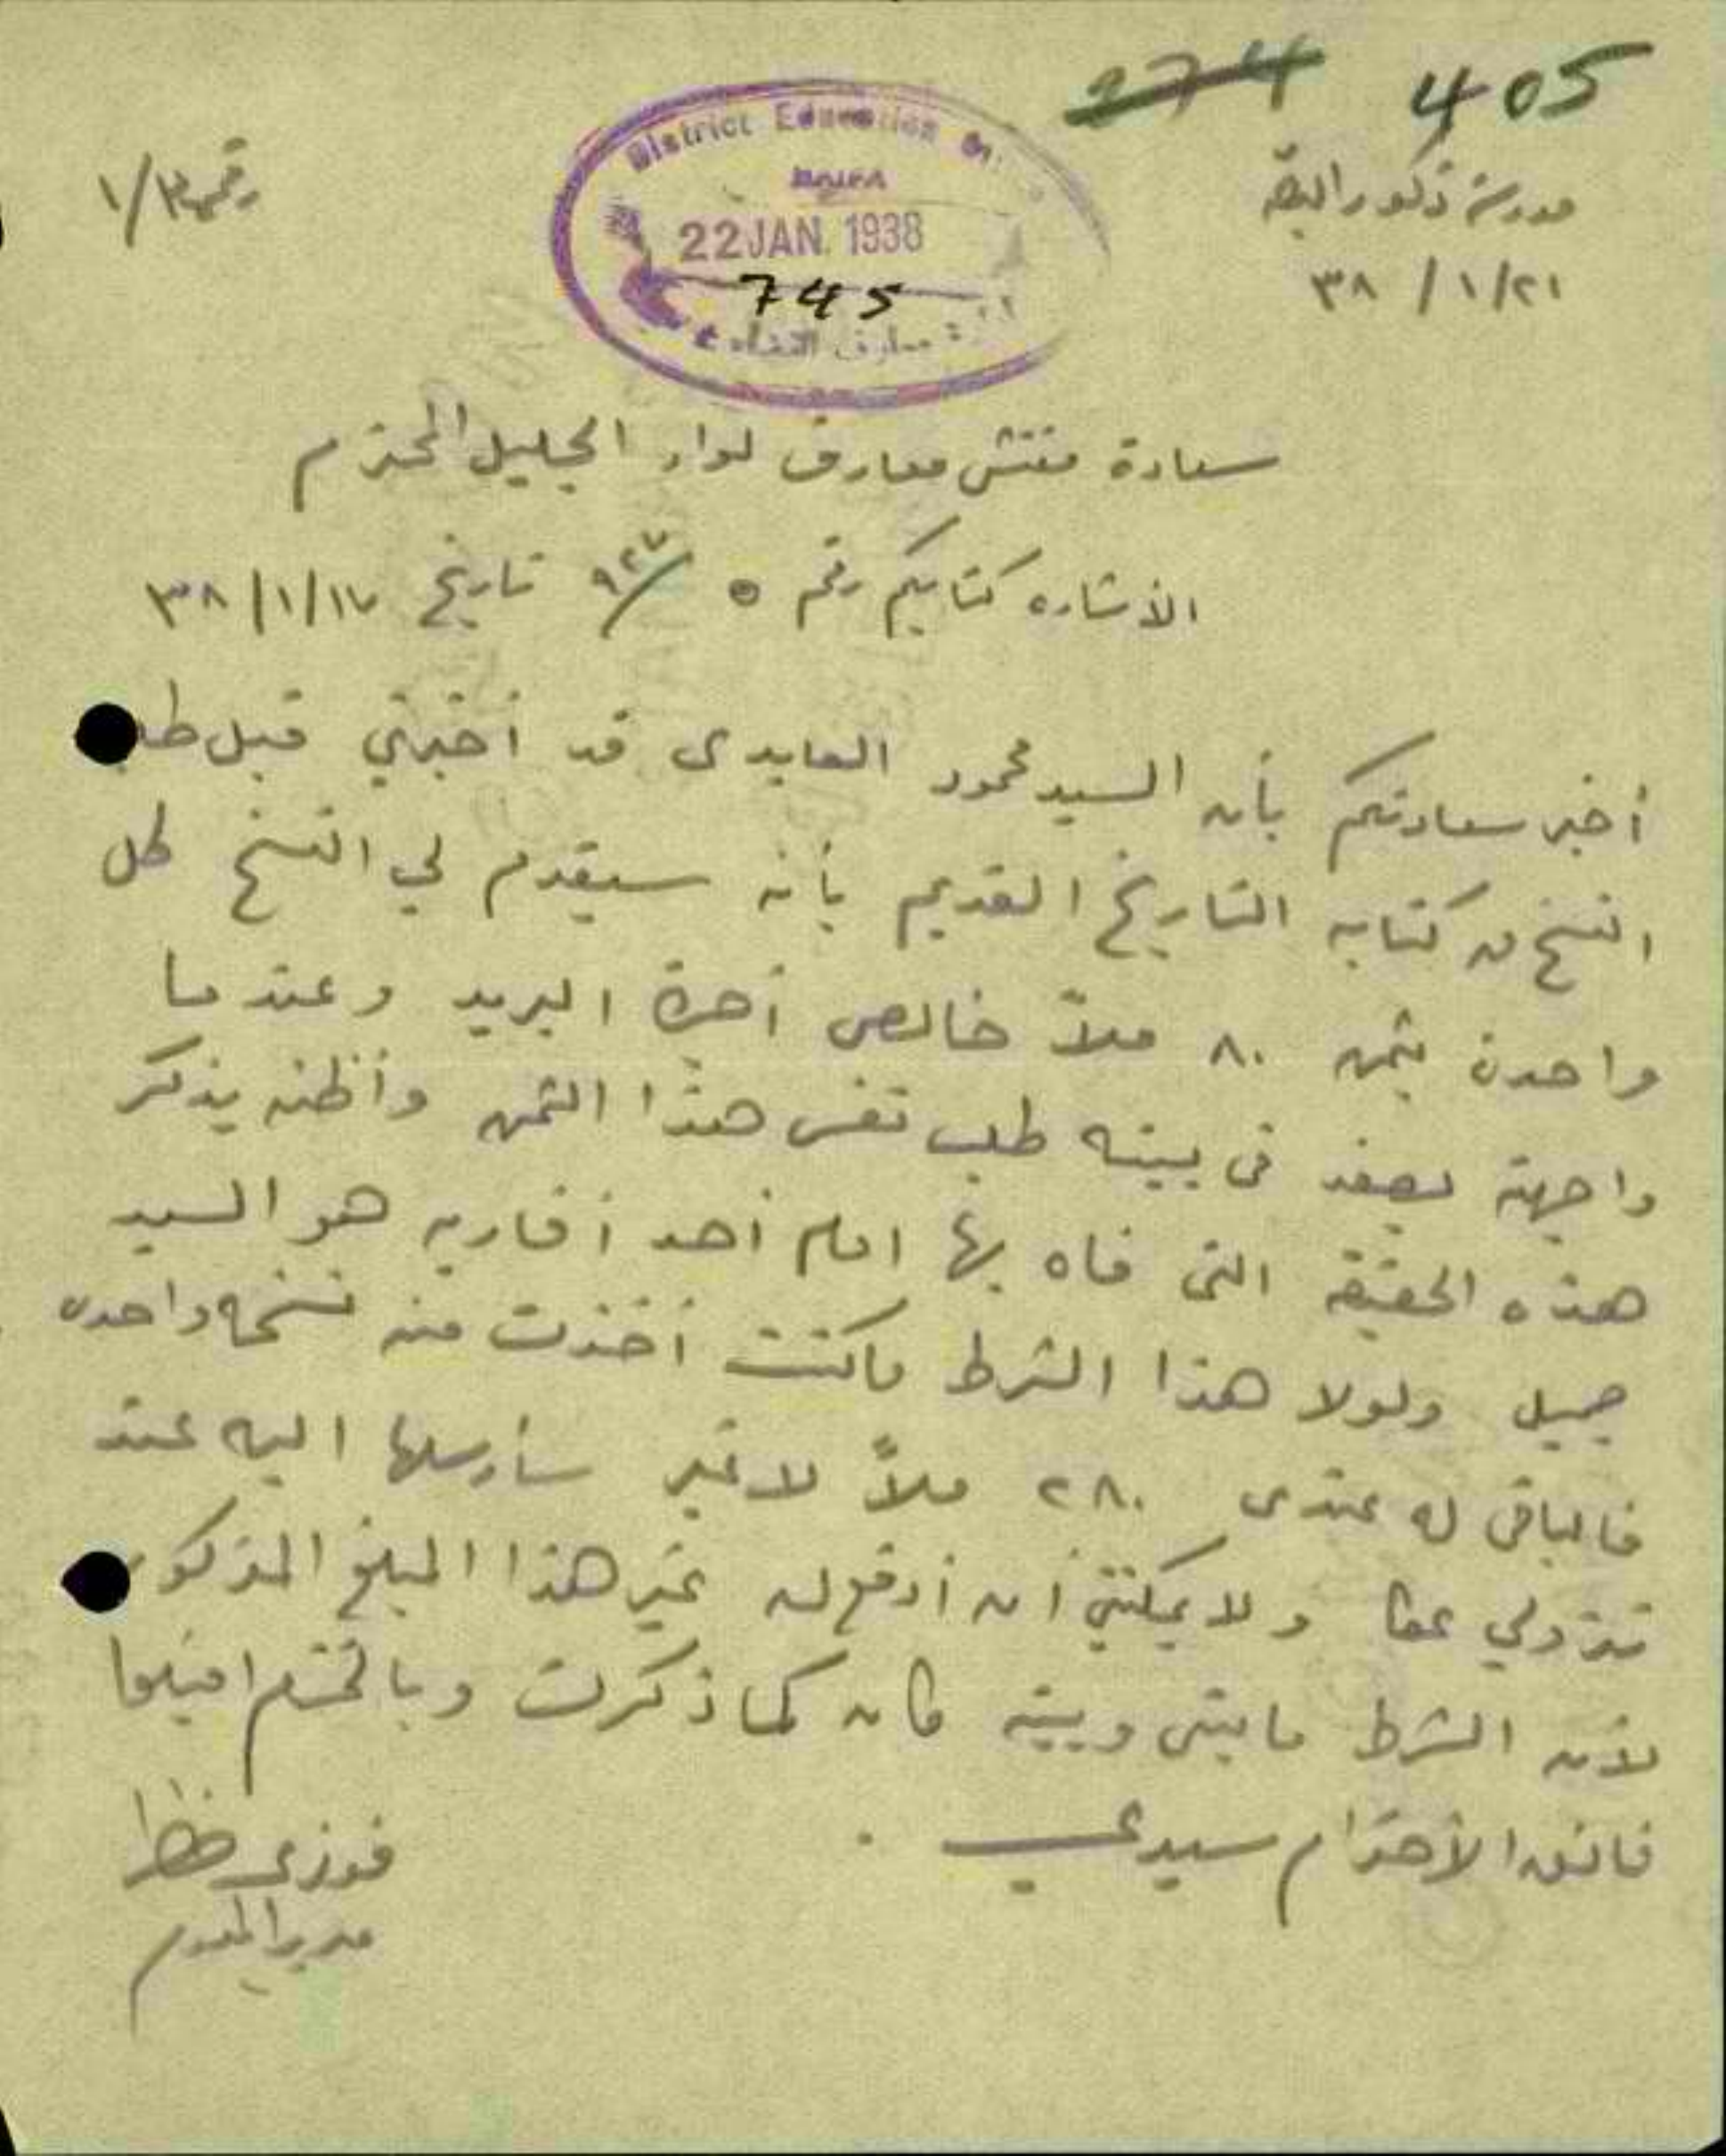 274 405
District Education
HAIFA
22 JAN. 1938
745
معارف القضاء
مدرسة ذكور البصة
٢١/١/٣٨
رقم ١/٣
سعادة مفتش معارف لواء الجليل المحترم
الأشاره كتابكم رقم ٥ /٩٢٧ تاريخ ١٧/١/٣٨
أخبر سعادتكم بأن السيد محمود العابدى قد أخبرني قبل طلب
النسخ من كتابه التاريخ القديم بأنه سيقدم لي النسخ كل
واحدة بثمن ٨٠ ملاً خالص أجرة البريد وعندما
واجهته بصفد في بيته طلب نفس هذا الثمن وأظنه يذكر
هذه الحقيقة التى فاه بها امام أحد أقاربه هو السيد
جميل ولولا هذا الشرط ماكنت أخذت منه نسخة واحده
فالباقى له عندى ٢٨٠ ملاً لا غير سأرسلها اليه عند
نزولي عكا ولا يمكنني أن أدفع له غير هذا المبلغ المذكور
لأن الشرط ما بينى وبينه كان كما ذكرت وبالختام اقبلوا
فائق الأحترام سيدي .
فوزى
مدير المدرسة